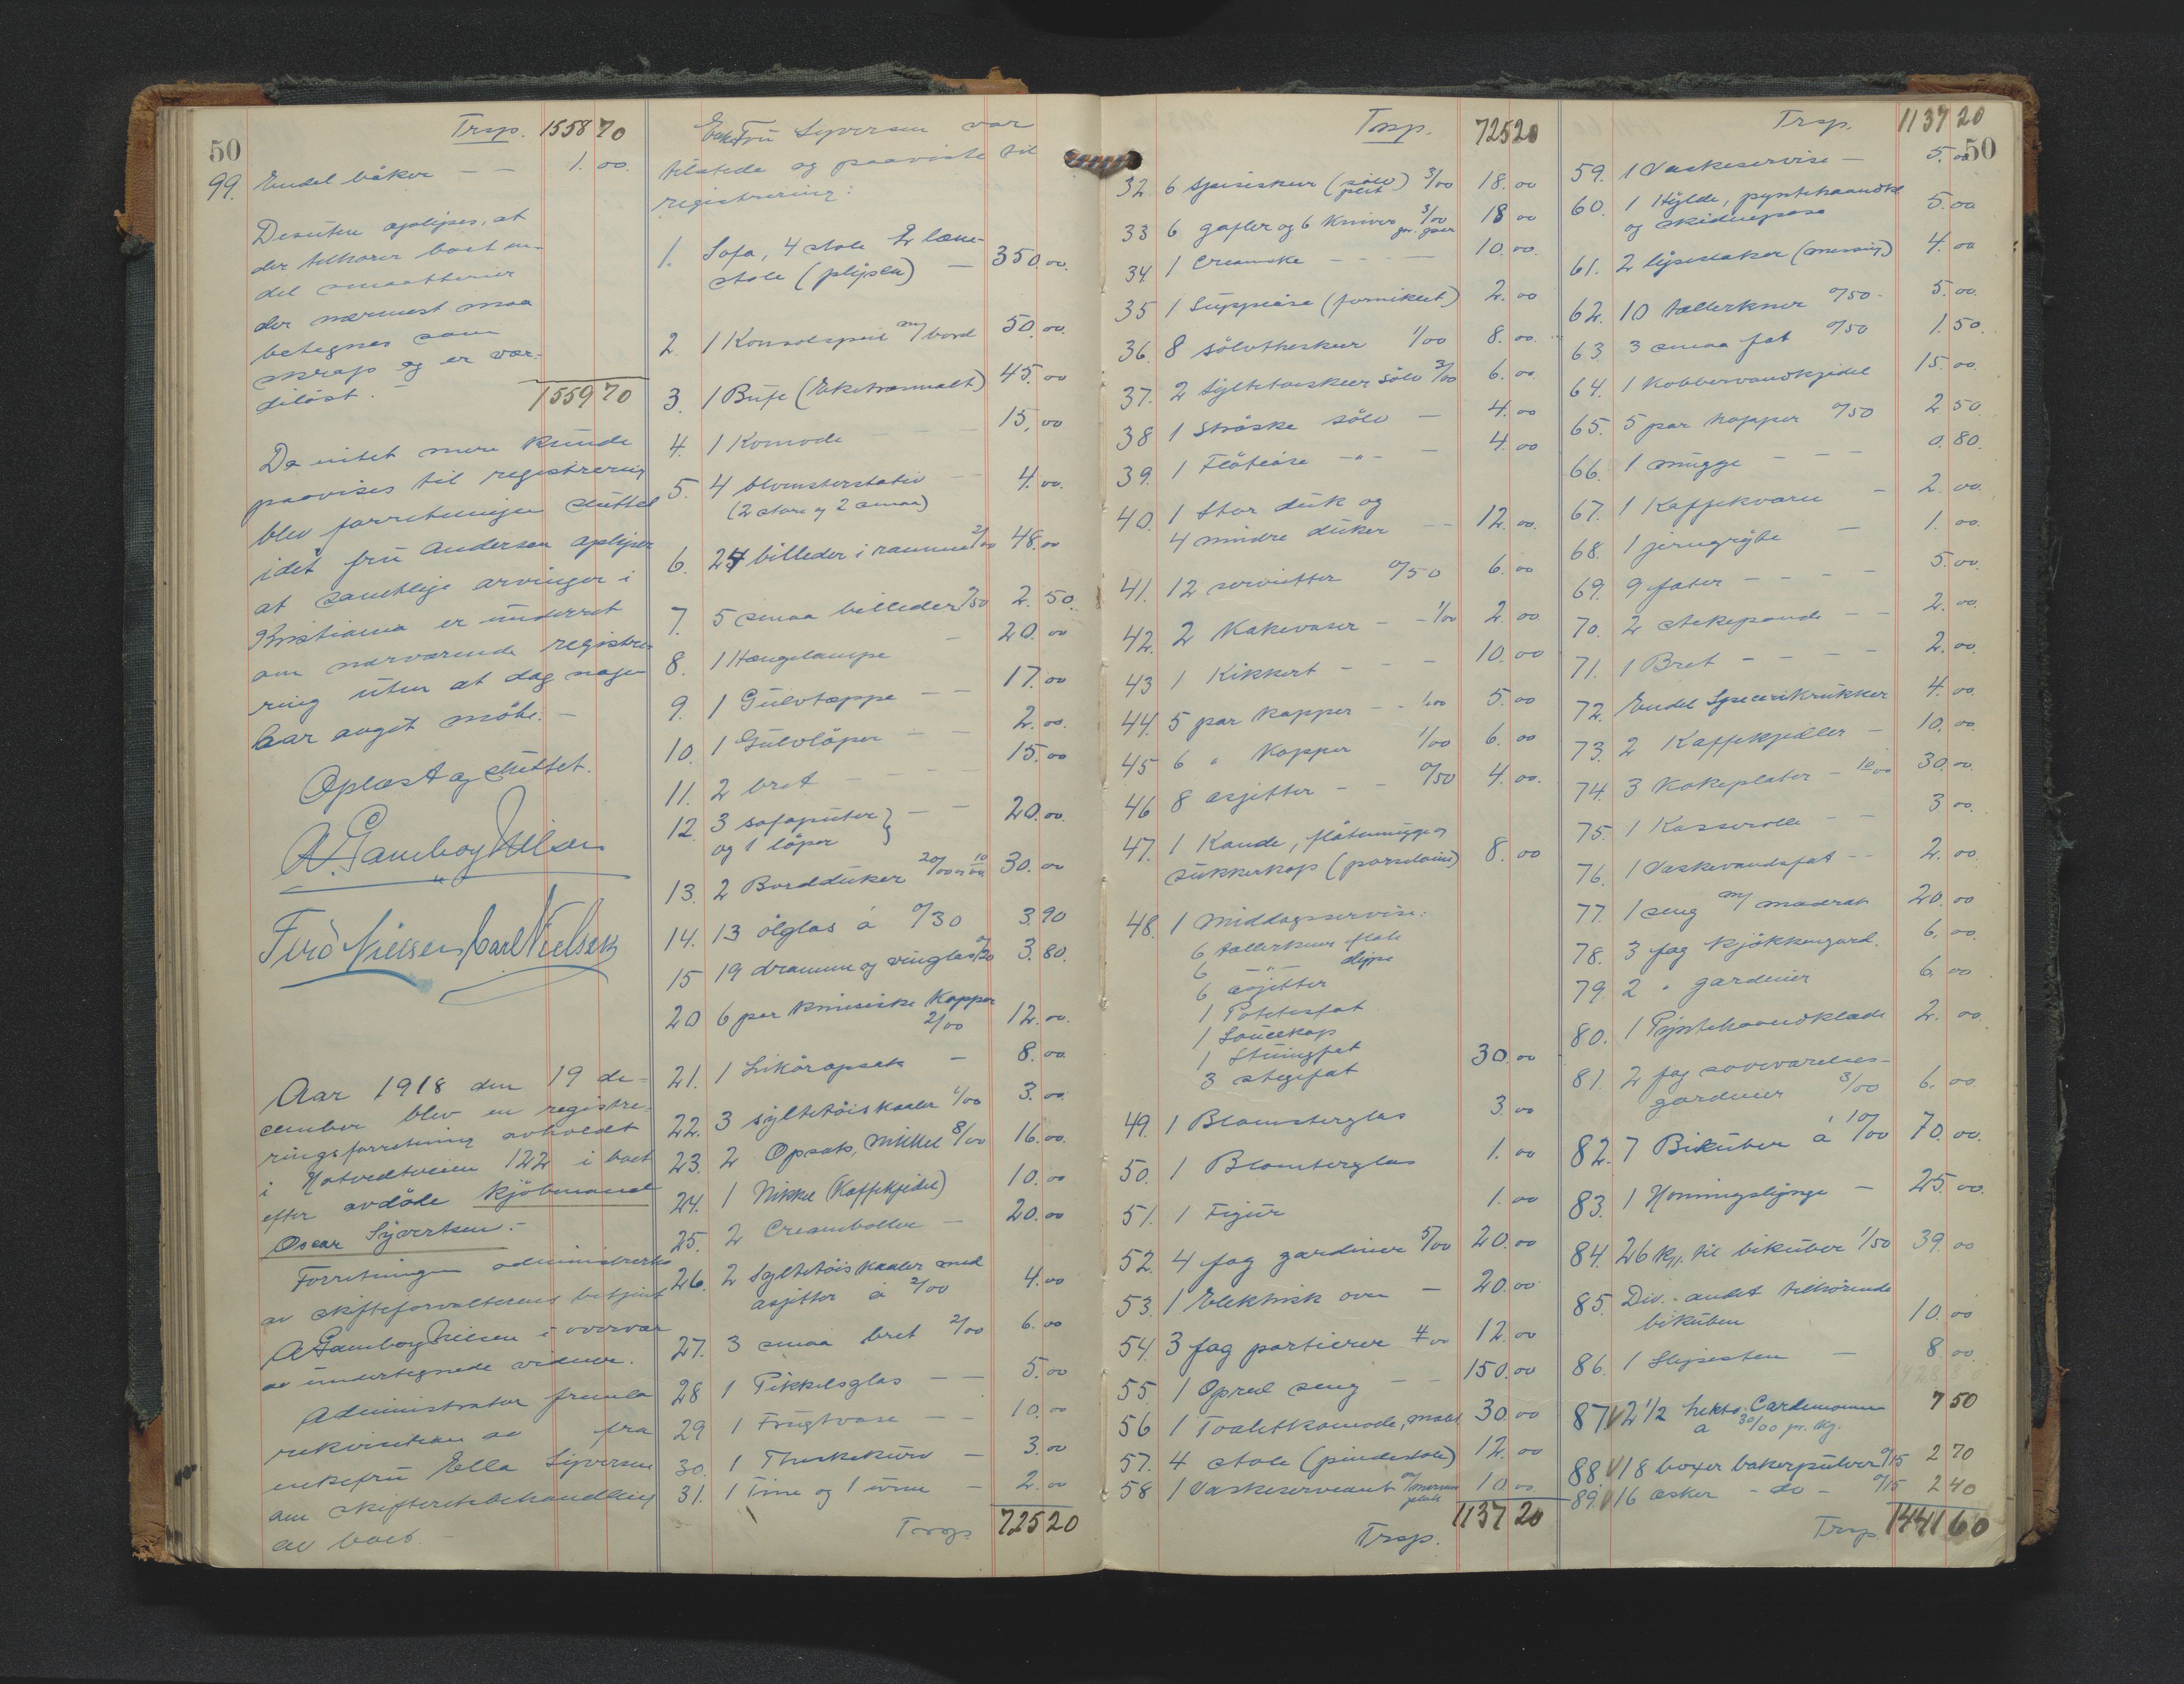 50
Trsp. 1558 70
99. Endel bøker — — 1.00.
Desuten oplyses, at
der tilhører boet en
del smaatterier
der nærmest maa
betegnes som
skrap og er vær-
diløst. —
1559 70
Da intet mere kunde
paavises til registrering
blev forretningen sluttet
idet fru Andersen oplyser
at samtlige arvinger i
Kristiania er underret
om nærværende registre-
ring uten at dog nogen
har avgit møte. —
Oplæst og sluttet.
A. Gamborg Nilsen
Ferd Nielsen Carl Nielsen
Aar 1918 den 19 de-
cember blev en registre-
ringsforretning avholdt
i Hotvedtveien 122 i boet
efter avdøde kjøbmand
Oscar Syvertsen. —
Forretningen administrertes
av skifteforvalterens betjent
A Gamborg Nielsen i overvær
av undertegnede vidner.
Administrator fremla
rekvisition av fra
enkefru Ella Syversen
om skifteretsbehandling
av boet —
Enkefru Syversen var
tilstede og paaviste til
registrering:
1. Sofa, 4 stole 2 læne-
stole (plysen) — 350.00.
2. 1 Konsolspeil m/ bord 50.00.
3. 1 Bufe (Eketræsmalt) 45.00
4. 1 Komode — — — 15.00
5. 4 blomsterstativ — —
(2 store og 2 smaa) 4.00.
6. 24 billeder i ramme 2/00 48.00
7. 5 smaa billeder 0/50 2.50.
8. 1 Hængelampe — 20.00
9. 1 Gulvtæppe — — 17.00
10. 1 Gulvløper — — 2.00.
11. 2 bret — — — — 15.00
12. 3 sofaputer } — —
og 1 løper 20.00.
13. 2 Bordduker 20/00 og 10/00 30.00
14. 13 ølglas á 0/30 3.90
15 19 dramme og vinglas 0/20 3.80.
20 6 par kinesiske Kopper
2/00 12.00.
21. 1 Likøropsats — 8.00
22. 3 syltetøiskaaler 1/00 3.00
23. 2 Opsats, Nikkel 8/00 16.00.
24. 1 Nikkel (Kaffekjedel) 10.00
25. 2 Creamboller — 20.00
26. 2 Syltetøiskaaler med
asjetter á 2/00 4.00
27. 3 smaa bret 2/00 6.00
28 1 Pikkelsglas — — 5.00
29 1 Frugtvase — — 10.00
30. 1 Theskekurv — 3.00
31. 1 Tine og 1 urne — 2.00
Trsp. 725 20
Trsp. 725 20
32. 6 spiseskeer (sølvplett) 3/00 18.00
33 6 gafler og 6 Kniver 3/00 pr. par 18 00
34 1 Creamske — — — — 10.00.
35 1 Suppeøse (forniklet.) 2.00
36. 8 sølvtheskeer 1/00 8.00.
37. 2 Syltetøiskeer sølv 3/00 6.00.
38 1 Strøske sølv — 4.00
39. 1 Fløteøse — " — — 4.00
40. 1 Stor duk og
4 mindre duker — — 12.00.
41. 12 servietter 0/50 6.00
42. 2 Kakevaser — — 1/00 2.00
43 1 Kikkert — — — 10.00
44. 5 par kopper — — 1.00 5.00
45 6 " Kopper 1/00 6.00
46 8 asjetter — — 0/50 4.00.
47. 1 Kande, fløtemugge og
sukkerkop (porselain) 8.00
48. 1 Middagsservise:
6 tallerkener flate
6 — " — dype
6 asjetter
1 Potetesfat
1 Saucekop
1 Stuingfat
3 stegefat 30.00
49. 1 Blomsterglas 3.00
50. 1 Blomsterglas 1.00
51. 1 Figur 1.00
52. 4 fag gardiner 5/00 20.00
53. 1 Elektrisk ovn — 20.00
54. 3 fag portierer 4.00 12.00
55. 1 Opred seng — — 150.00
56 1 Toaletkomode, malt 30.00
57. 4 stole (pindestole) 12.00
58 1 Vaskeservant m/ marmorplate 10.00
Trsp. 1137 20
Trsp. 1137 20
50
59. 1 Vaskeservise — 5.00
60. 1 Hylde, pyntehaandkl
og skiduepose 5.00
61. 2 lysestaker (messing) 4.00
62. 10 tallerkner 0/50 5.00.
63. 3 smaa fat 0/50 1.50.
64. 1 Kobbervandkjedel 15.00.
65. 5 par kopper 0/50 2 50.
66. 1 mugge — — — 0.80.
67. 1 Kaffekværn — 2.00.
68. 1 jerngryte — 1.00.
69. 9 fater — — — — 5.00.
70. 2 stekepande — — 2.00.
71. 1 Bret — — — — 2.00.
72. Endel Specerikrukker 4.00
73. 2 Kaffekjedler — 10.00.
74. 3 Kokeplater — 10.00 30.00.
75. 1 Kasserolle — — 3.00.
76. 1 Vaskevandsfat — — 2.00.
77. 1 seng m/ madrats 20.00
78. 3 fag kjøkkengard. 6.00.
79. 2 " gardiner 6.00
80. 1 Pyntehaandklæde 2.00.
81. 2 fag soveværelses-
gardiner 3/00 6.00
82. 7 Bikuber á 10/00 70.00.
83. 1 Honningslynge — 25.00.
84. 26 Kg. til bikuber 1/50 39.00
85. Div. andet tilhørende
bikuben 10.00
86. 1 Slipesten — 8.00
87. V 2 1/2 hekto Cardemomme 7 50
a 30/00 pr. kg.
88. V 18 boxer bakerpulver 0/15 2 70
89. V 16 æsker — do — 0/15 2 40
Trsp 1441 60